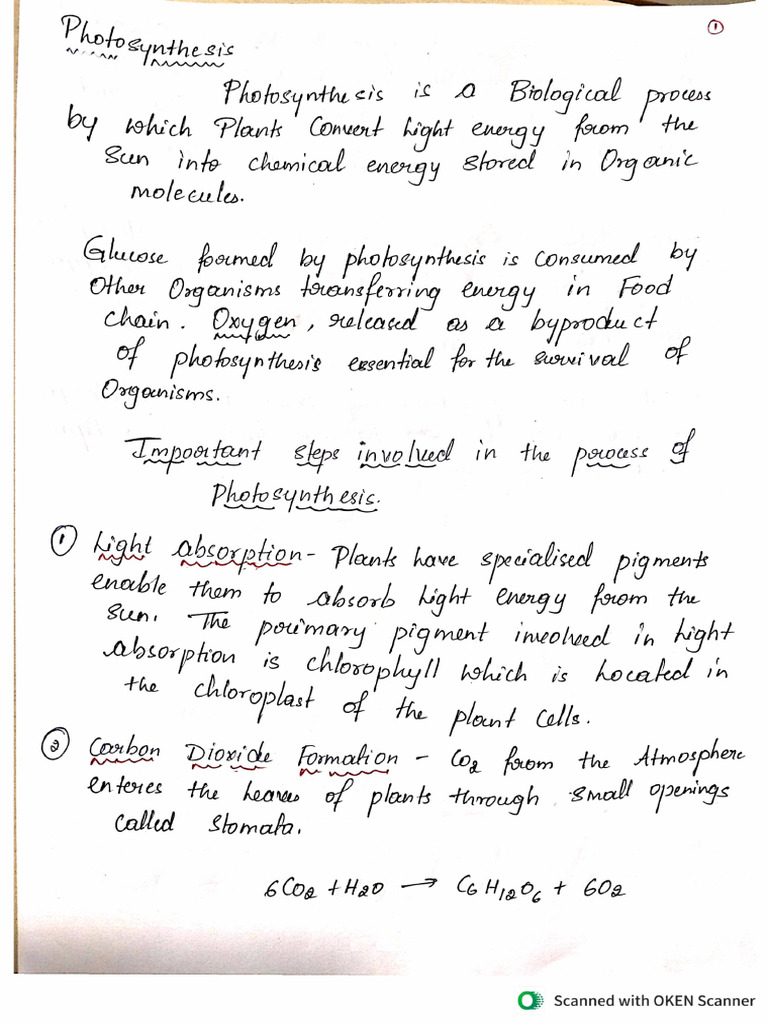 ①
Photosynthesis
Photosynthesis is a Biological process
by which Plants Convert Light energy from the
Sun into chemical energy stored in Organic
molecules.
Glucose formed by photosynthesis is consumed by
Other Organisms transferring energy in Food
Chain. Oxygen, released as a byproduct
of photosynthesis essential for the survival of
Organisms.
Important steps involved in the process of
Photosynthesis.
① Light absorption - Plants have specialised pigments
enable them to absorb Light energy from the
Sun. The primary pigment involved in Light
absorption is chlorophyll which is Located in
the chloroplast of the plant Cells.
② Carbon Dioxide Formation - CO2 from the Atmosphere
enteres the Leaves of plants through small openings
Called Stomata.
6CO2 + H2O → C6H12O6 + 6O2
Scanned with OKEN Scanner